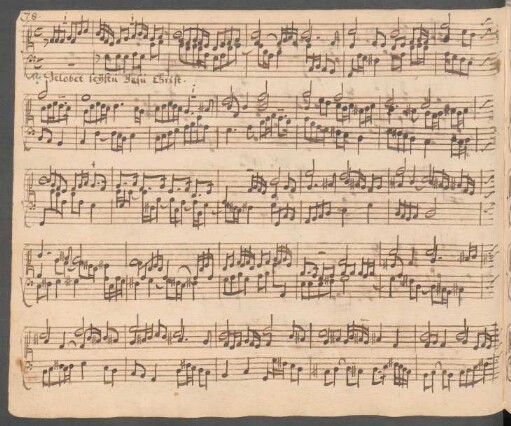 78.
Gelobet seystu Jesu Christ.